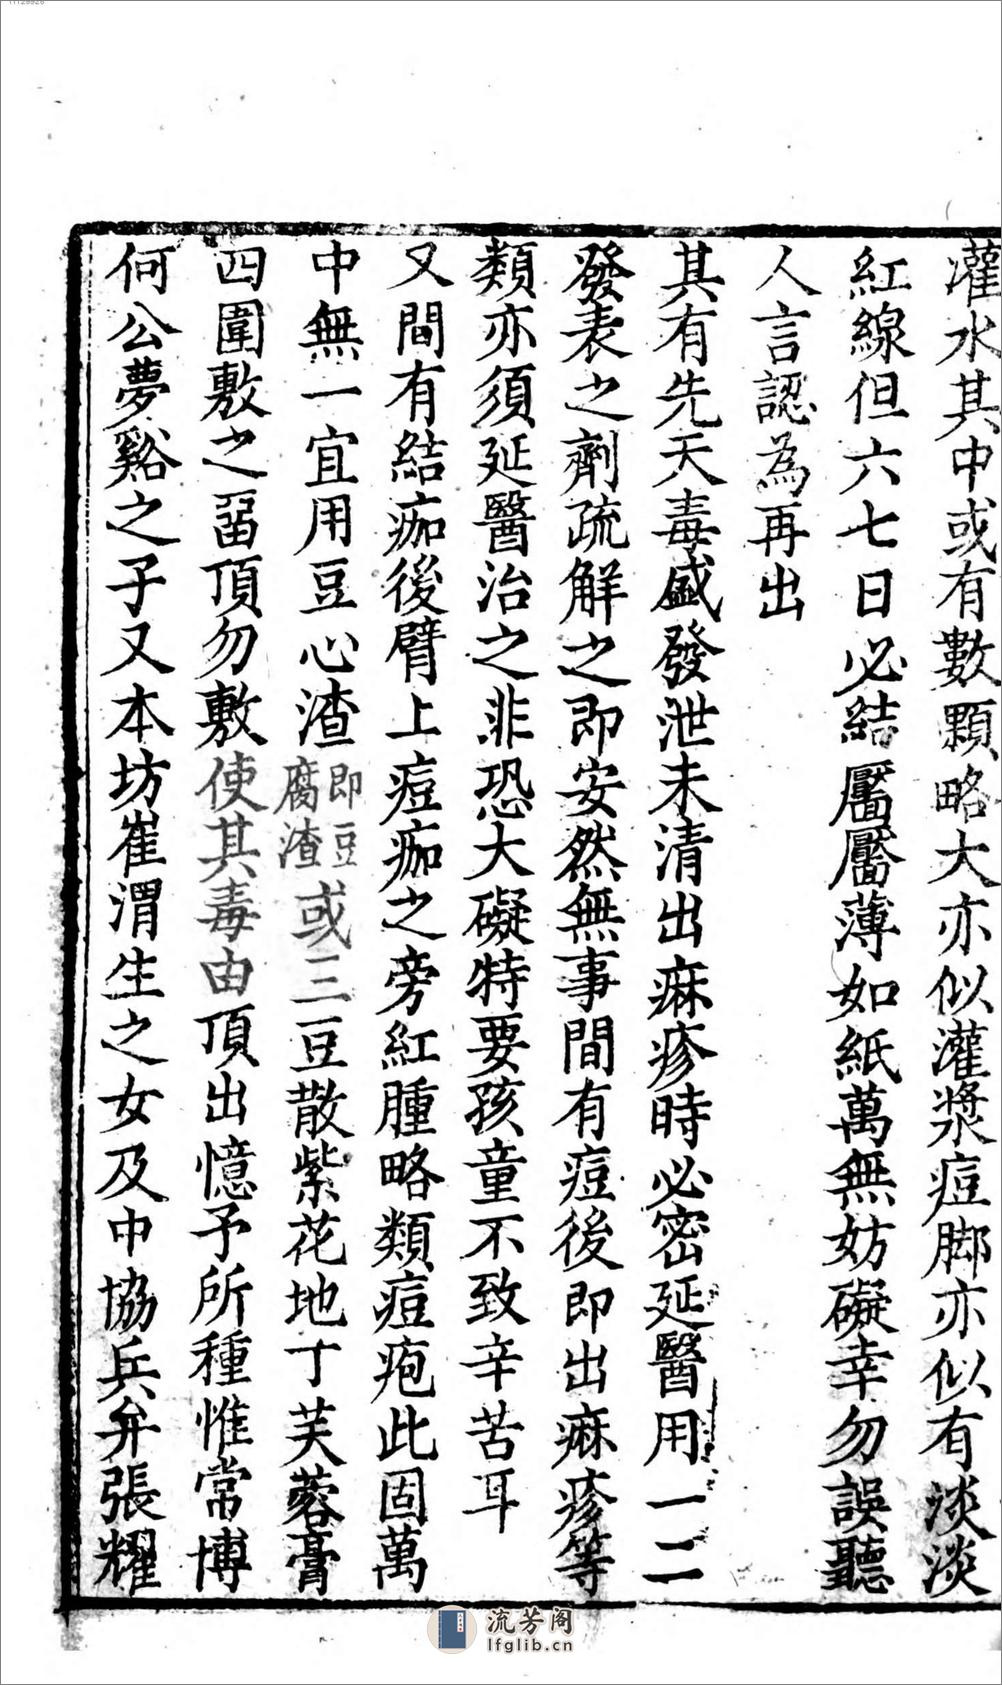 灌水其中或有數顆略大亦似灌漿痘脚亦似有淡淡
紅線但六七日必結靨靨薄如紙萬無妨礙幸勿誤聽
人言認為再出
其有先天毒盛發泄未清出痳疹時必密延醫用一二
發表之劑疏解之即安然無事間有痘後即出痳疹等
類亦須延醫治之非恐大礙特要孩童不致辛苦耳
又間有結痂後臂上痘痂之旁紅腫略類痘疱此固萬
中無一宜用豆心渣即豆腐渣或三豆散紫花地丁芙蓉膏
四圍敷之畱頂勿敷使其毒由頂出憶予所種惟常博
何公夢谿之子又本坊崔渭生之女及中協兵弁張耀
流芳阁
lfglib.cn